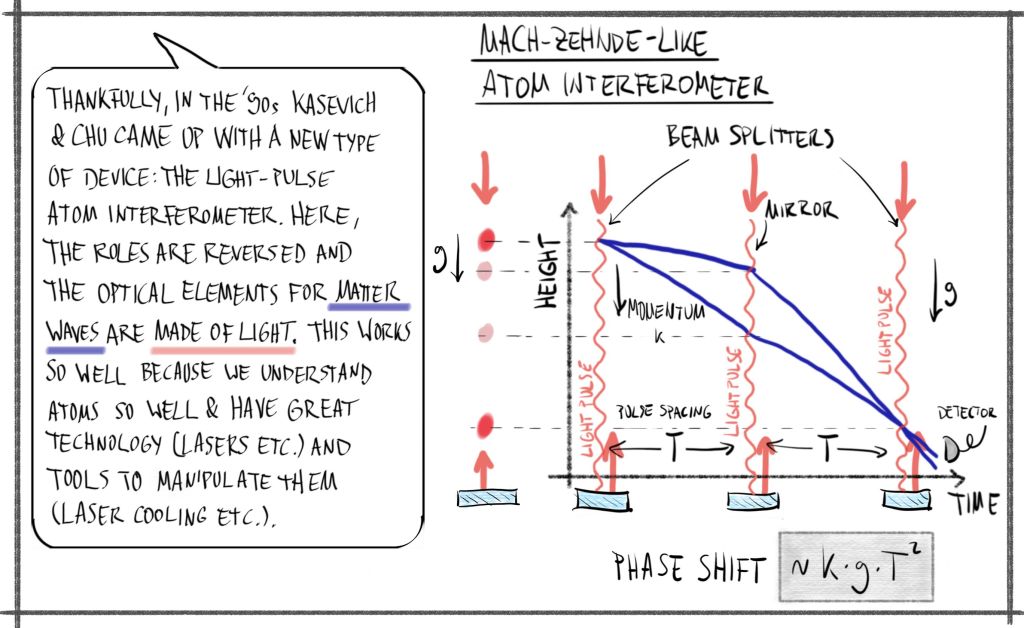 THANKFULLY, IN THE '90s KASEVICH
& CHU CAME UP WITH A NEW TYPE
OF DEVICE: THE LIGHT-PULSE
ATOM INTERFEROMETER. HERE,
THE ROLES ARE REVERSED AND
THE OPTICAL ELEMENTS FOR MATTER
WAVES ARE MADE OF LIGHT. THIS WORKS
SO WELL BECAUSE WE UNDERSTAND
ATOMS SO WELL & HAVE GREAT
TECHNOLOGY (LASERS ETC.) AND
TOOLS TO MANIPULATE THEM
(LASER COOLING ETC.).
MACH-ZEHNDE-LIKE
ATOM INTERFEROMETER
BEAM SPLITTERS
MIRROR
g
HEIGHT
MOMENTUM
k
g
LIGHT PULSE
LIGHT PULSE
LIGHT PULSE
PULSE SPACING
T
T
DETECTOR
TIME
PHASE SHIFT ~ k·g·T²